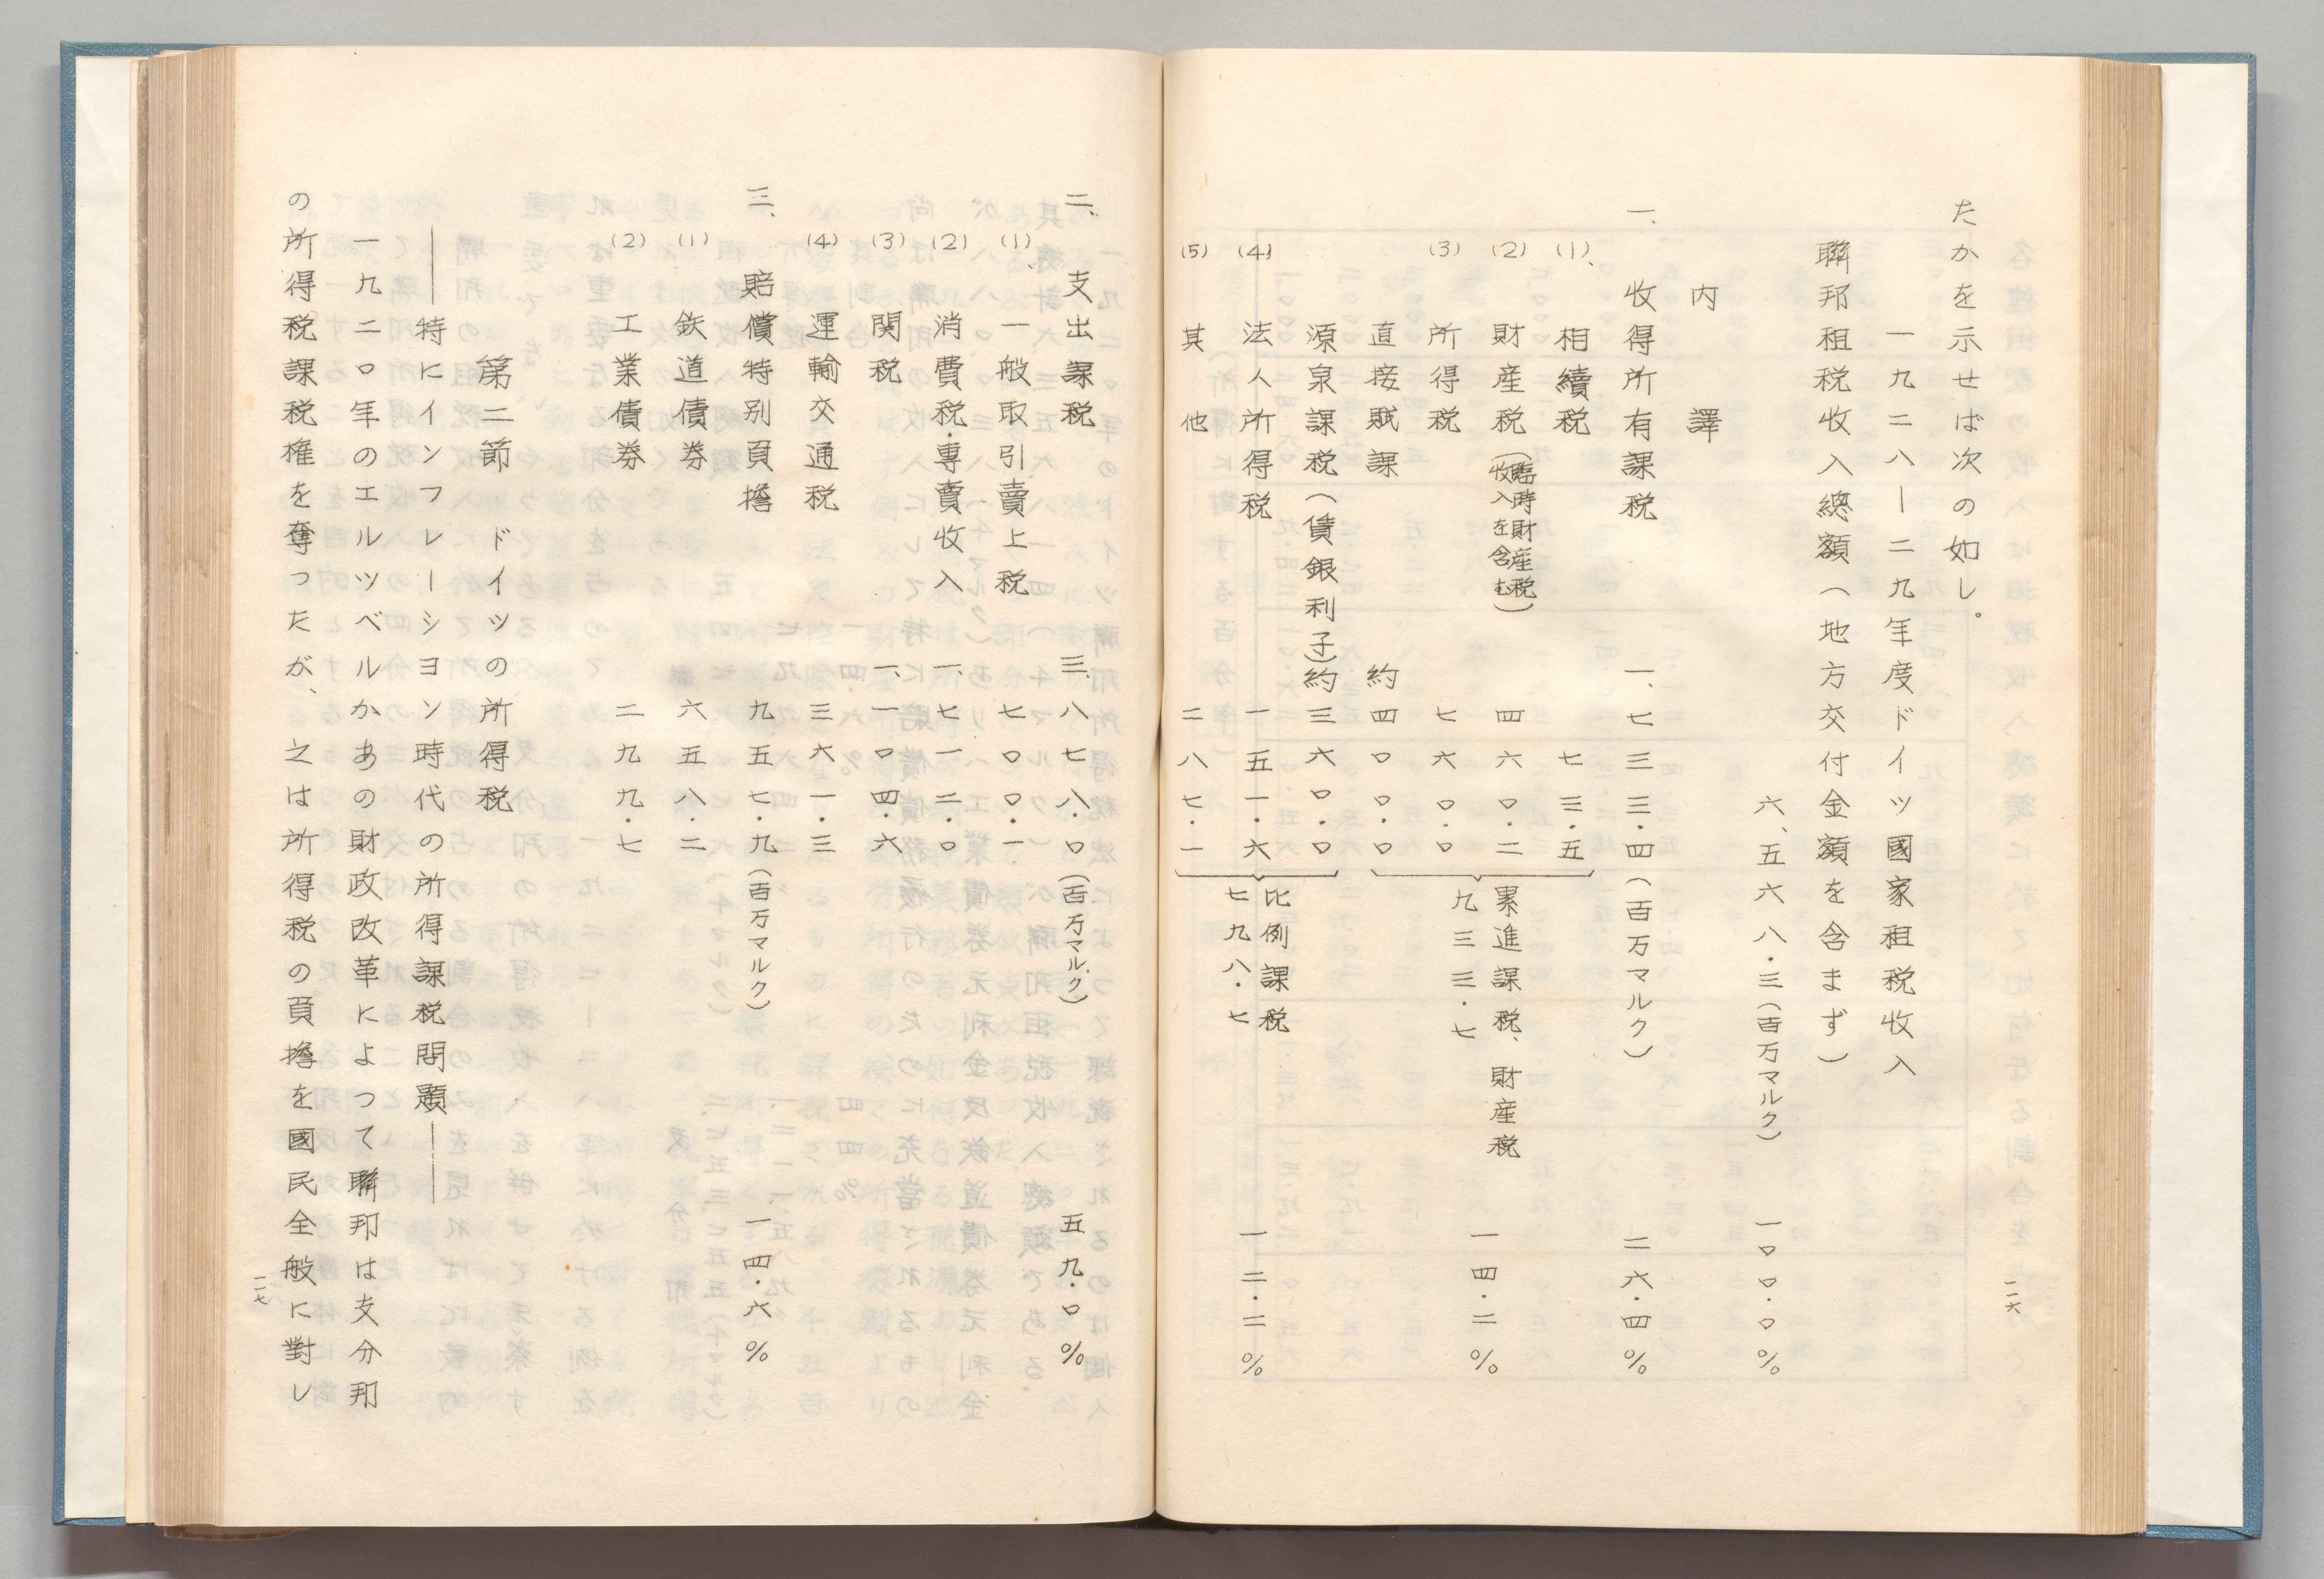 たかを示せば次の如し。
一九二八ー二九年度ドイツ國家租税收入
聯邦租税收入總額（地方交付金額を含まず）
六、五六八・三（百万マルク） 一〇〇・〇％
内譯
一、收得所有課税 一、七三三・四（百万マルク） 二六・四％
(1)、相續税 七三・五
(2) 財産税（臨時財産税收入を含む） 四六〇・二
(3) 所得税 七六〇・〇
直接賦課 約四〇〇・〇
累進課税、財産税
九三三・七 一四・二％
源泉課税（賃銀利子）約三六〇・〇
(4) 法人所得税 一五一・六
(5) 其他 二八七・一
比例課税
七九八・七 一二・二％
一一六
二、支出課税 三、八七八・〇（百万マルク） 五九・〇％
(1)、一般取引賣上税 一、七〇〇・一
(2) 消費税・專賣收入 一、七一二・〇
(3) 関税 一、一〇四・六
(4) 運輸交通税 三六一・三
三、賠償特別負擔 九五七・九（百万マルク） 一四・六％
(1) 鉄道債券 六五八・二
(2) 工業債券 二九九・七
第二節 ドイツの所得税
――特にインフレーシヨン時代の所得課税問題――
一九二〇年のエルツベルかあの財政改革によつて聯邦は支分邦
の所得税課税権を奪つたが、之は所得税の負擔を國民全般に對し
一一七